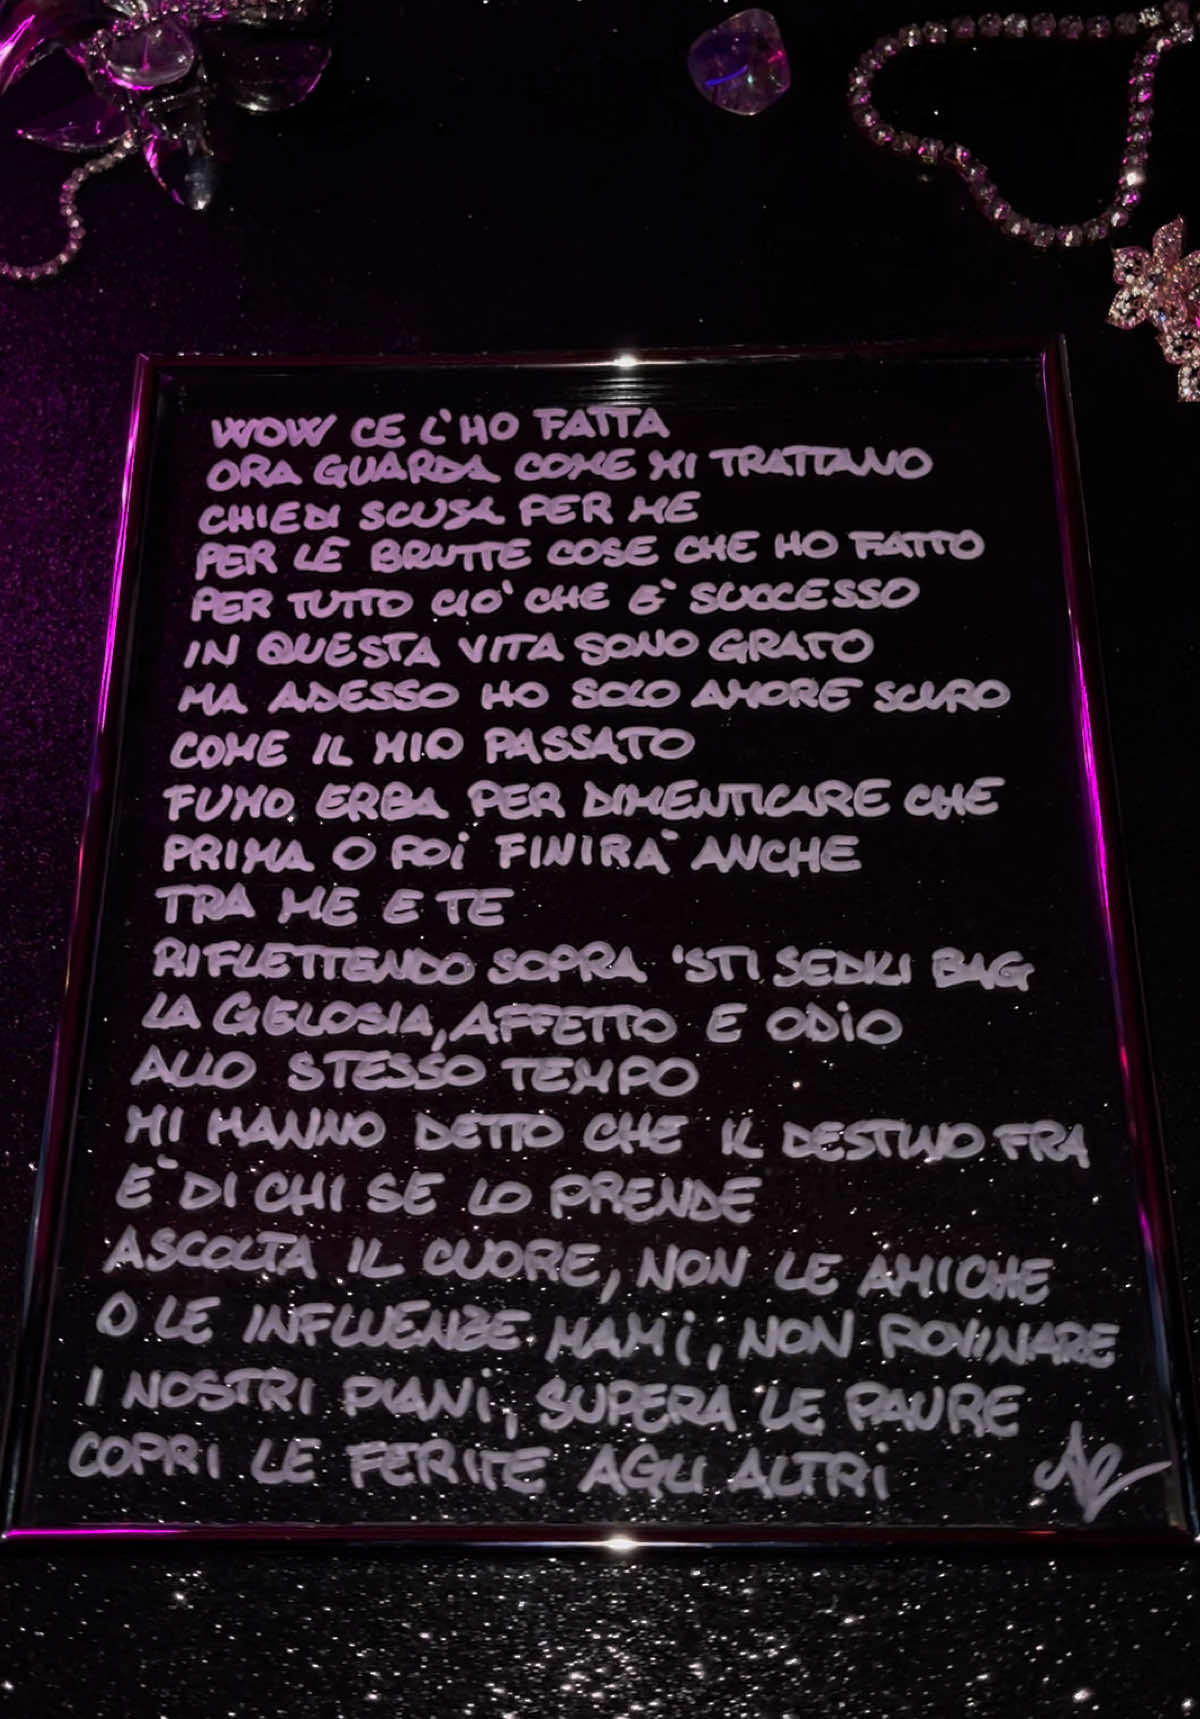 WOW CE L'HO FATTA
ORA GUARDA COME MI TRATTANO
CHIEDI SCUSA PER ME
PER LE BRUTTE COSE CHE HO FATTO
PER TUTTO CIO' CHE E' SUCCESSO
IN QUESTA VITA SONO GRATO
MA ADESSO HO SOLO AMORE SCURO
COME IL MIO PASSATO
FUMO ERBA PER DIMENTICARE CHE
PRIMA O POI FINIRA' ANCHE
TRA ME E TE
RIFLETTENDO SOPRA 'STI SEDILI BAG
LA GELOSIA, AFFETTO E ODIO
ALLO STESSO TEMPO
MI HANNO DETTO CHE IL DESTINO FRA
E' DI CHI SE LO PRENDE
ASCOLTA IL CUORE, NON LE AMICHE
O LE INFLUENZE MAMI, NON ROVINARE
I NOSTRI PIANI, SUPERA LE PAURE
COPRI LE FERITE AGLI ALTRI